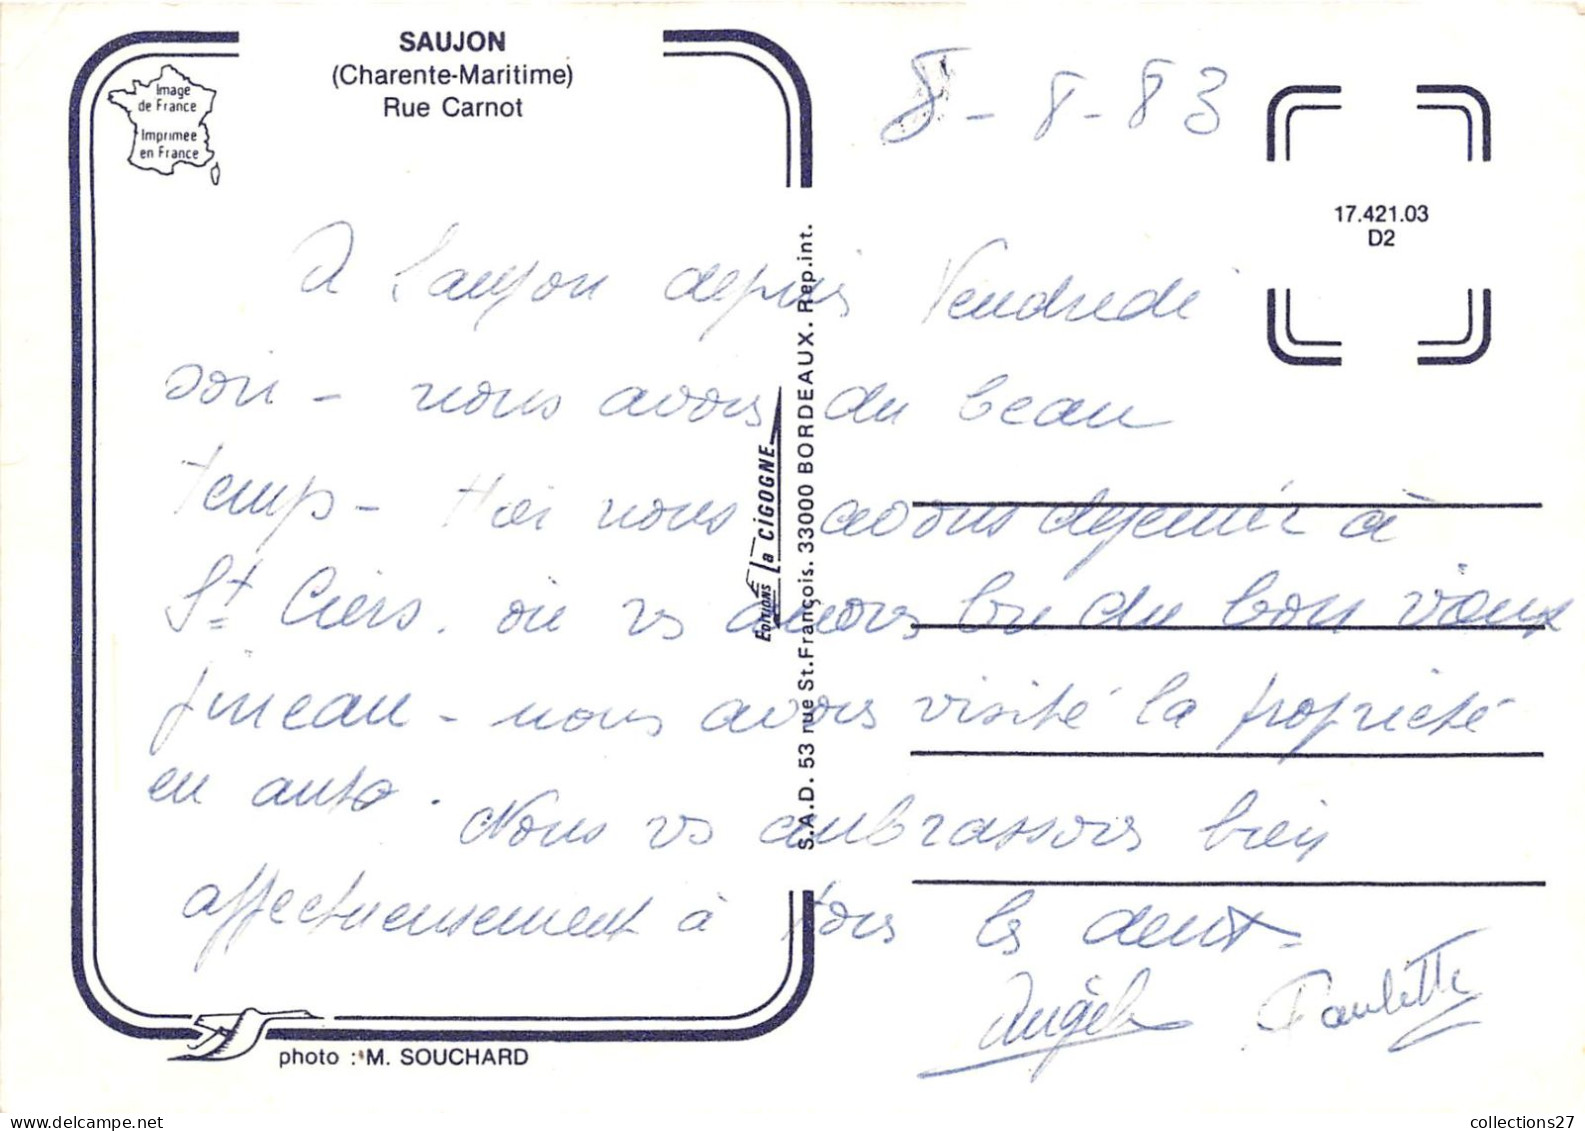 SAUJON
(Charente-Maritime)
Rue Carnot
Image
de France
Imprimee
en France
8-8-83
17.421.03
D2
A Saujon depuis Vendredi
soir - nous avons du beau
temps - Hier nous avons dejeuné à
St Ciers. où vs avons bu du bon vieux
pineau - nous avons visité la propriété
en auto.
Nous vs embrassons bien
affectueusement à tous les deux -
Angèle Paulette
Editions La CIGOGNE
S.A.D. 53 rue St.François. 33000 BORDEAUX. Rep.int.
photo : M. SOUCHARD
collections27